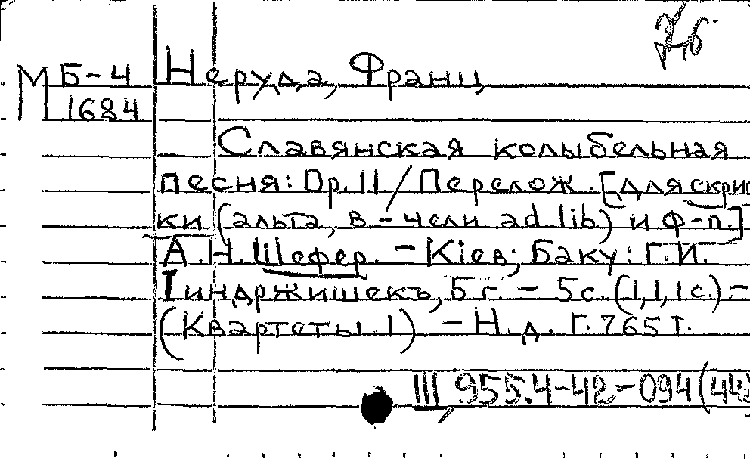 7,5
М Б-4 Неруда, Франц
1684
Славянская колыбельная
песня: Op. 11 / Перелож. [для скрип
ки (альта, в-чели ad lib) и ф-п.]
А.Н. Шефер. - Кіев; Баку: Г.И.
Iиндржишекъ, б г. - 5с. (1,1,1с.) -
(Квартеты 1) - Н. д. Г. 765 I.
III 955.4-42-094(44)